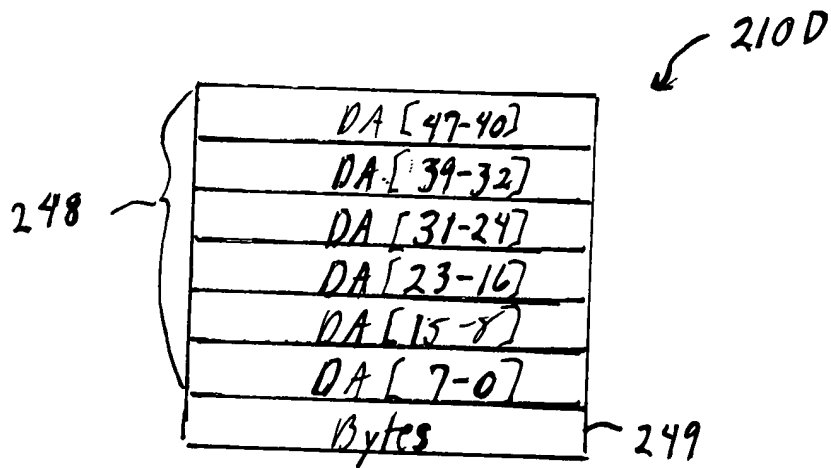 210D
DA [47-40]
DA [39-32]
248
DA [31-24]
DA [23-16]
DA [15-8]
DA [7-0]
Bytes
249